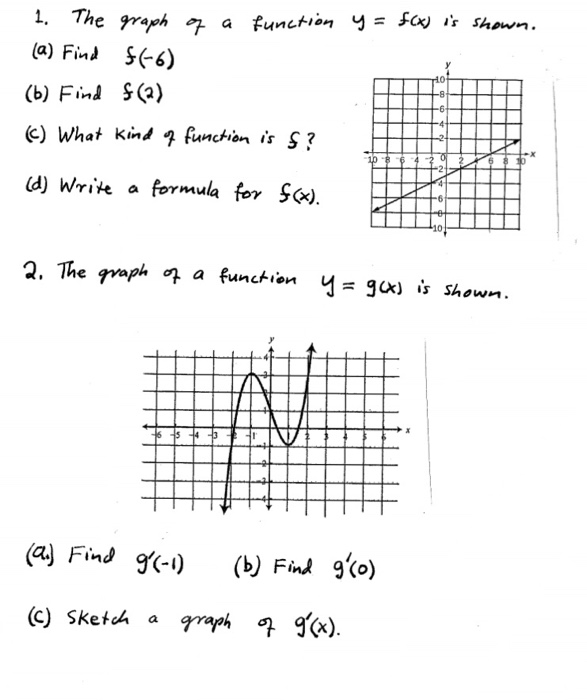 1. The graph of a function y = f(x) is shown.
(a) Find f(-6)
(b) Find f(2)
(c) What kind of function is f?
(d) Write a formula for f(x).
y
10
8
6
4
2
-10 -8 -6 -4 -2 0 2 4 6 8 10 x
-2
-4
-6
-8
-10
2. The graph of a function y = g(x) is shown.
y
4
3
2
1
-6 -5 -4 -3 -2 -1 1 2 3 4 5 6 x
-1
-2
-3
-4
(a.) Find g'(-1) (b) Find g'(0)
(c) Sketch a graph of g'(x).